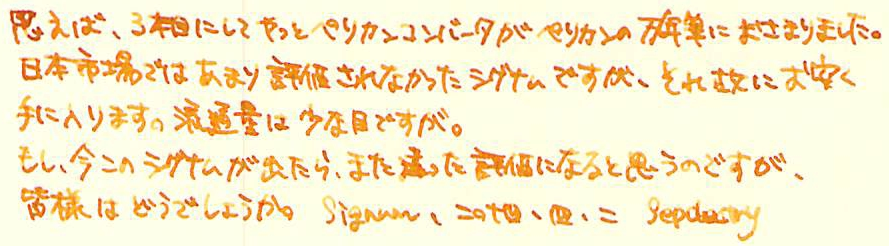 思えば、3本目にしてやっとペリカンコンバータがペリカンの万年筆におさまりました。
日本市場ではあまり評価されなかったシグナムですが、それ故にお安く
手に入ります。流通量は少な目ですが。
もし、今このシグナムが出たら、また違った評価になると思うのですが、
皆様はどうでしょうか。 Signum、